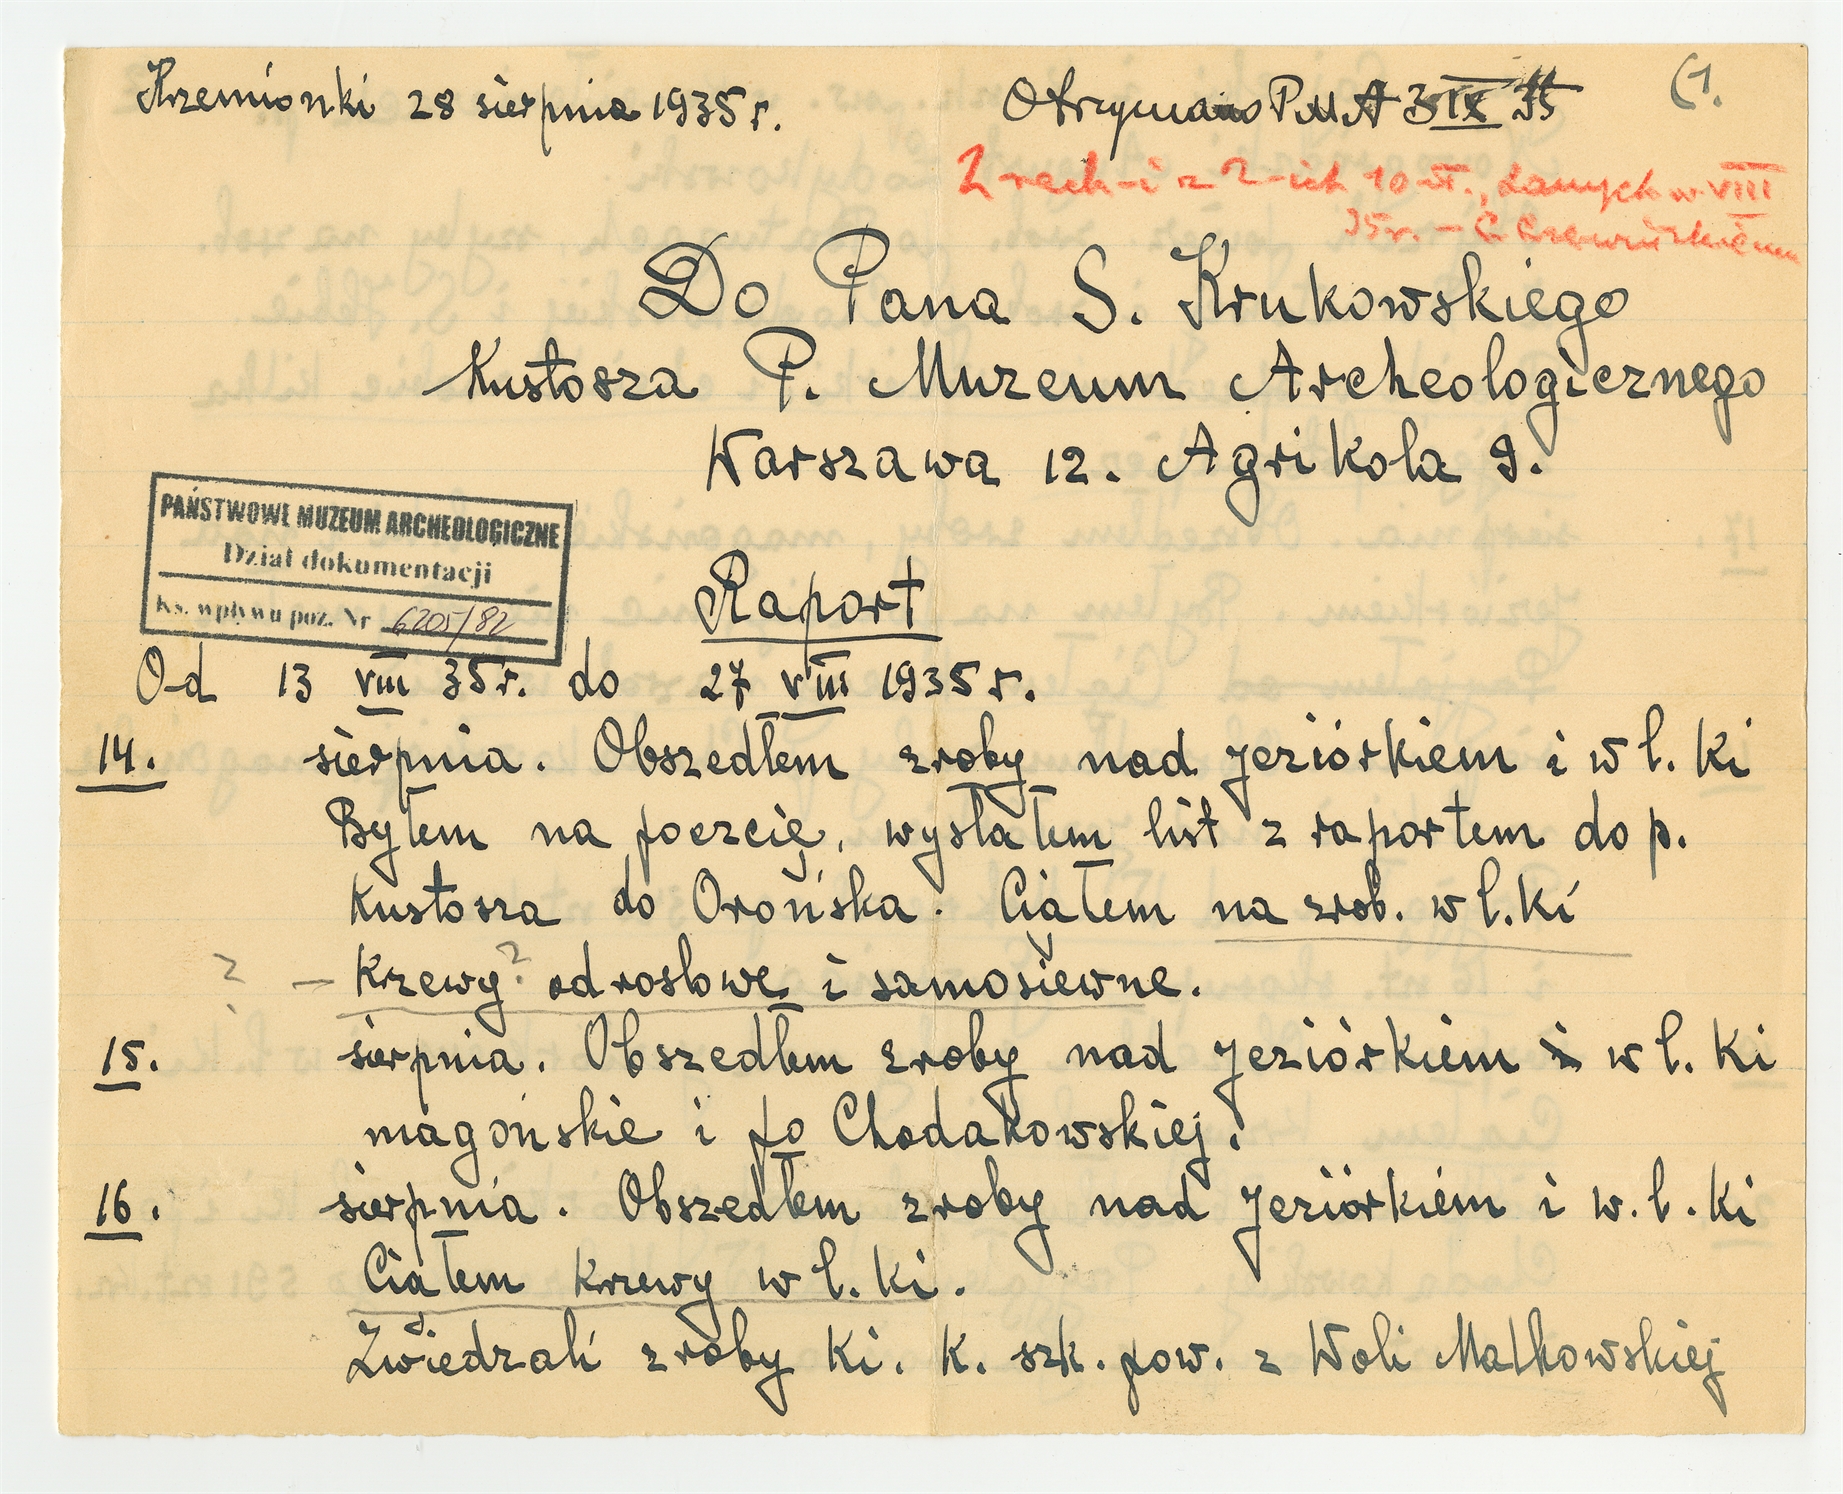 Krzemionki 28 sierpnia 1935 r.
Otrzymano PMA 3 IX 35
(1.
2 rach-i z 2-ich 10 zł., danych w VIII
35 r. –
Do Pana S. Krukowskiego
Kustosza P. Muzeum Archeologicznego
Warszawa 12. Agrikola 9.
PAŃSTWOWE MUZEUM ARCHEOLOGICZNE
Dział dokumentacji
Ks. wpływu poz. Nr 6205/82
Raport
Od 13 VIII 35 r. do 27 VIII 1935 r.
14. sierpnia. Obszedłem zroby nad Jeziórkiem i w l. Ki
Byłem na poczcie, wysłałem list z raportem do p.
Kustosza do Orońska. Ciałem na zrob. w l. Ki
? – Krzewy? odroslowe i samosiewne.
15. sierpnia. Obszedłem zroby nad Jeziórkiem i w l. Ki
magońskie i po Chodakowskiej.
16. sierpnia. Obszedłem zroby nad Jeziórkiem i w. l. Ki
Ciałem Krzewy w l. Ki.
Zwiedzali zroby Ki. K. szk. pow. z Woli Malkowskiej